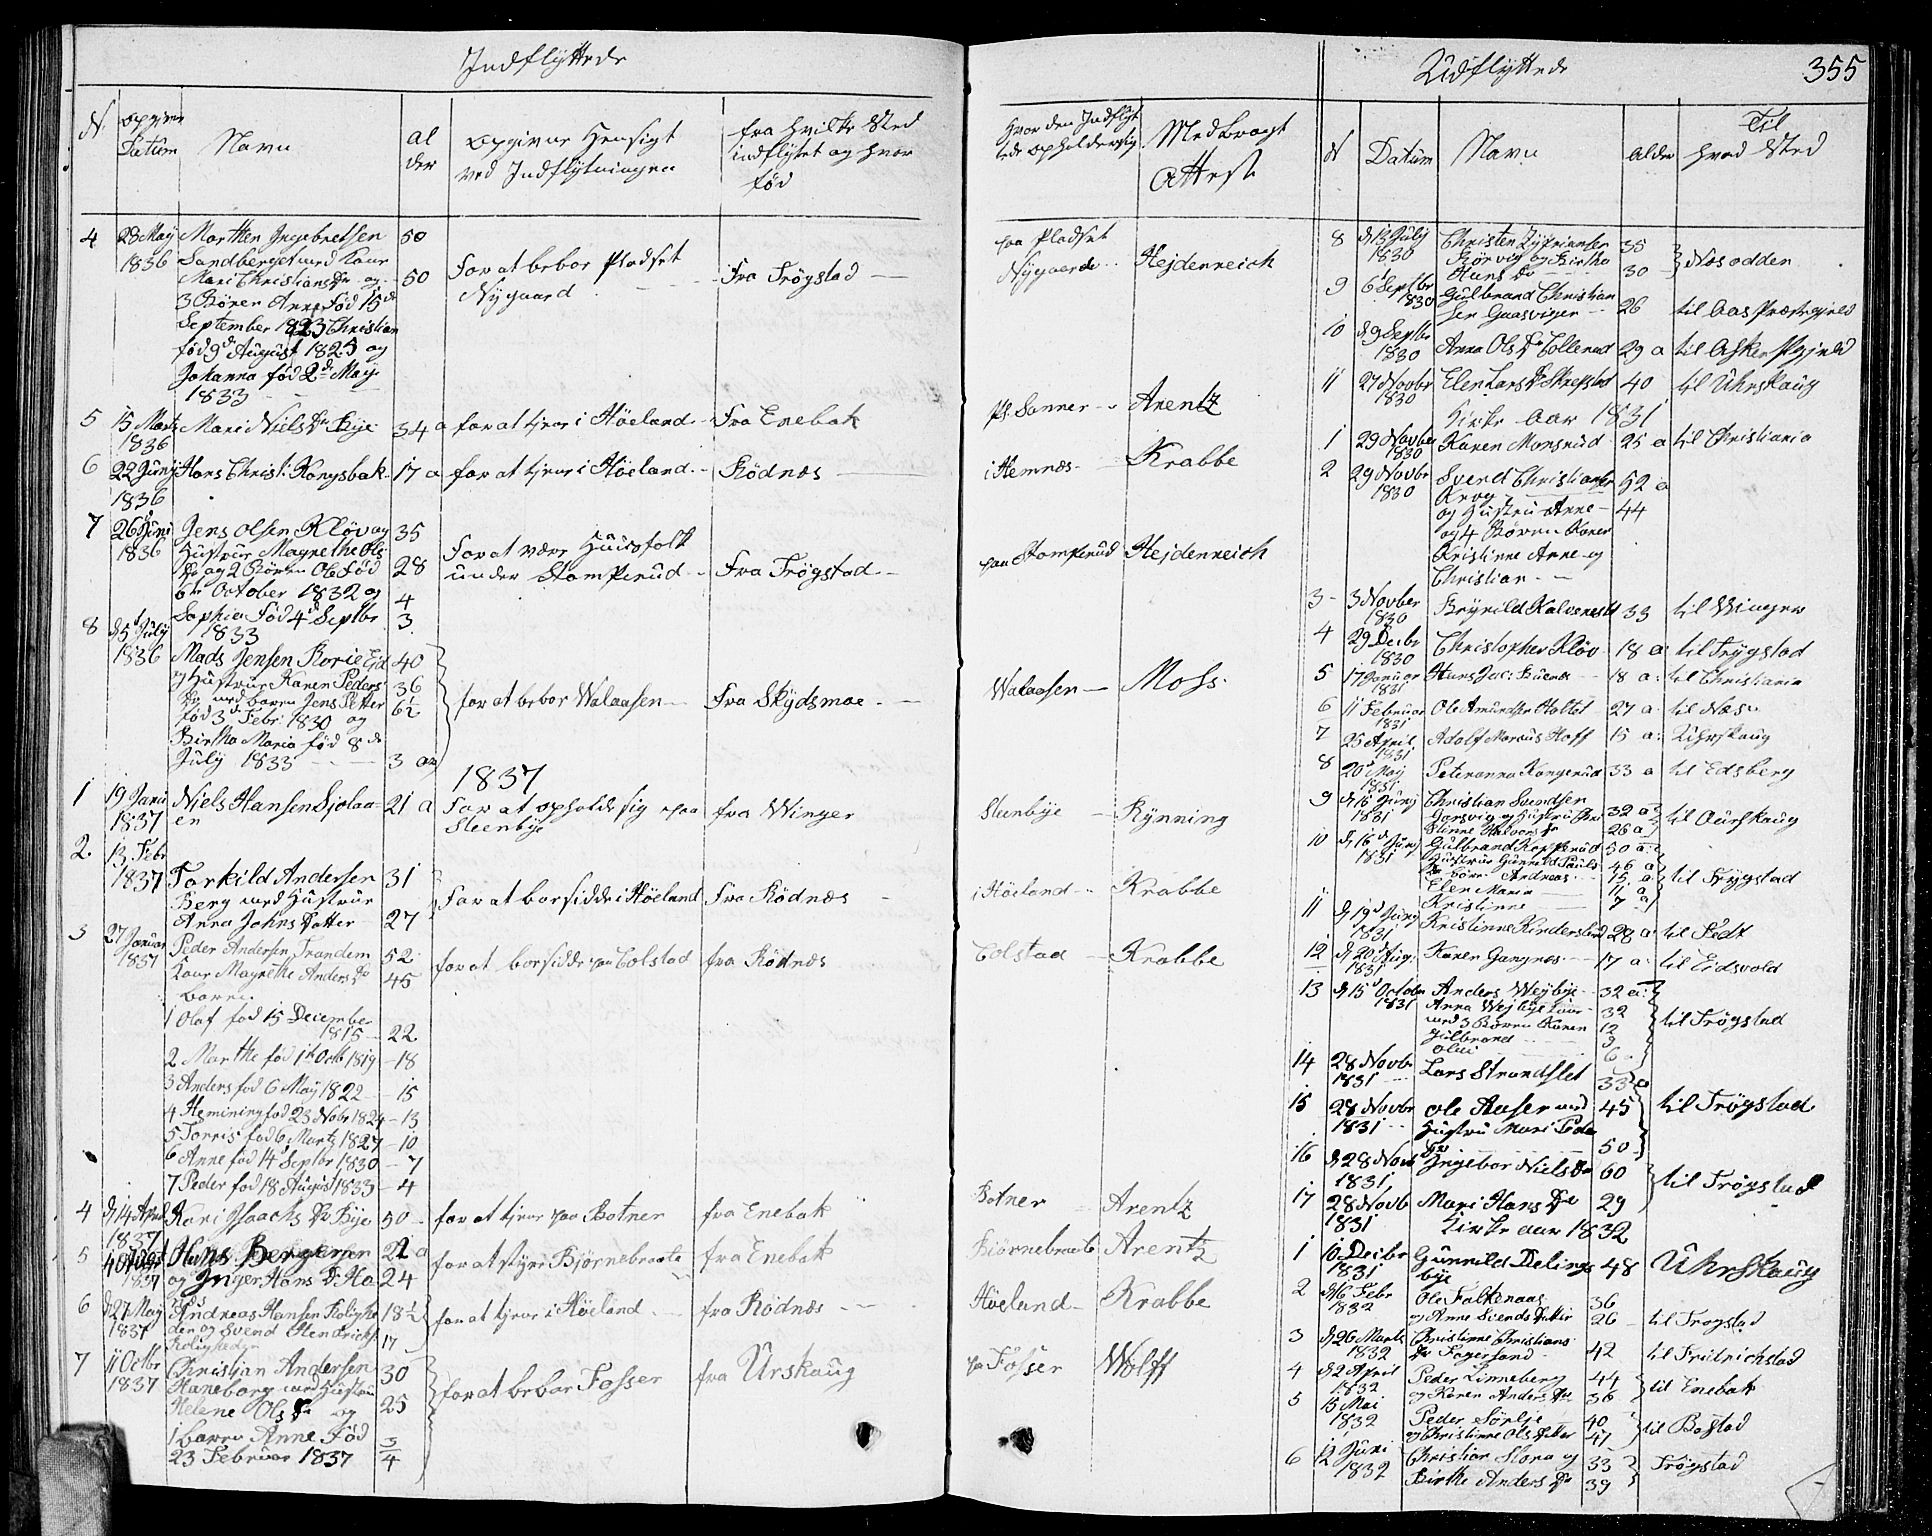 Indflyttede
N. opgiven Datum
Navn
Al der
opgivne Hensigt ved Indflytningen
fra hvilke Sted indflytet og hvor fød
Hvor den Indflytede opholder sig
Medbragt Attest
4 28 May 1836
Morthen Ingebretsen 50
Sandberget med Kone
Mari Christians Dr og 50
3 Børn Anne Fød 15de
September 1823 Christian
fød 9de August 1825 og
Johanna fød 2de May
1833
For at beboe Pladset Nygaard
Fra Trøgstad
paa Pladset Nygaard
Hejdenreich
5 15 Marts 1836 Mari Niels Dr Bije 34 a for at tjene i Høeland Fra Enebak
Pl. Sonner Arentz
6 22 Juny 1836 Hans Christi: Kongsbak 17 a for at tjene i Høeland Rødnæs
i Hemnæs Krabbe
7 26 Juni 1836
Jens Olsen Kløv og 35
Hustrue Magrethe Ols
Dr og 2 Børn Ole Fød 28
6te October 1832 og 4
Sophie Fød 4de Septbr 3
1833
For at være Huusfolk under Stomperud
Fra Trøgstad
paa Stomperud Hejdenreich
8 d 5 July 1836
Mads Jensen Borie Eid 40
og Hustrue Karen Peders 36
Dr med barn Jens Petter 6½
fød 3de Febr: 1830 og
Birthe Maria fød 8de
July 1833 3 aar
for at beboe Walaasen
Fra Skydsmoe
Walaasen Moss.
1837
1 19 Janu 1837 Niels Hansen Sjolaaen 21 a
For at opholde sig paa Steenbye
fra Winger
Steenbye Rynning
2. 13 Febr 1837
Torkild Andersen 31
Berg med Hustrue
Anna Johns Datter 27
For at borsidde i Høeland Fra Rødnæs
i Høeland Krabbe
3 27 Januar 1837
Peder Andersen Trandem 52
Kone Magrethe Anders Dr 45
børn
1 Olaf fød 15 December
1815 22
2 Marthe fød 1te Octb 1819 18
3 Anders fød 6 May 1822 15
4 Heminin fød 23 Nobr 1824 13
5 Torris fød 6 Marts 1827 10
6 Anne fød 14 Septbr 1830 7
7 Peder fød 18 August 1833 4
for at borsidde paa Tolstad fra Rødnæs
Tolstad Krabbe
4 d 14 April 1837 Kari Isaachs Dr Bije 50 for at tjene paa Botner fra Enebak
Botner Arentz
5 1837
Hans Bergersen 22 a
og Inger Hans Dr 24
for at styre Bjørnebraate fra Enebak
Biørnebraate Arentz
6 d 27 May 1837
Andreas Hansen 18½
og Svend Hendrichs. 17
for at tjene i Høeland fra Rødnæs
Høeland Krabbe
7 11 Octbr 1837
Christian Andersen 30
Haneborg med Hustrue
Helene Ols Dr og 25
1 barn Anne Fød
23 Februar 1837 3/4
for at beboe Fosser fra Urskaug
paa Fosser Wolff
Udflyttede
355
N Datum Navn Alder Til hvad Sted
8 d 13 July 1830
Christen Zifriansen 35
Børvig og Birthe
Hans Dr 30
Næsodden
9 6 Septbr 1830
Gulbrand Christian
sen Gaasvigen 26 til Aas Præstegield
10 d 9 Septbr 1830 Anna Ols Dr Tollerud 29 a til Asker Pgjeld
11 27 Novbr 1830 Elen Lars Dr Skrepstad 40 til Uhrskaug
Kirke Aar 1831
1 29 Novbr 1830 Karen Monsrud 25 a til Christiania
2 29 Novbr 1830
Svend Christiansen 52 a
Krog
og Hustru Anne 44
og 4 Børn Karen
Kristinne Anne og
Christian
3 3 Novber 1830 Brynild Kalvenesset 33 til Winger
4 29 Decbr 1830 Christopher Kløv 18 a. til Trygstad
5 17 Januar 1831 Hans Jac: Buera 18 a. til Christiania
6 11 Februar 1831 Ole Amundsen Holtet 27 a til Næs
7 25 April 1831 Adolf Marcus Hoff 15 a. Uhrskaug
8 20 May 1831 Peternanna Kongerud 33 a til Edsberg
9 d 16 Juny 1831
Christian Svendsen
Gorsvig og Hustru 32 a
Stinne Halvors Dr 26 a
til Aurskaug
10 d 16 Juny 1831
Gulbrand Kopperud 50 a
Hustrue Gunnild Pauls 46 a
Dr børn Andreas 15 a
Elen Maria 11 a
Kristinne 7 a
til Trygstad
11 d 19 Juny 1831 Kristinne Kinderslind 28 a til Fedt
12 d 20 Aug. 1831 Karen Gangnæs 17 a. til Eidsvold
13 d 15 October 1831
Anders Wejbye 32 a
Anna Wejbye Kone 32
med 3 Børn Karen 12
Gulbrand 9
Olui 6
til Trøgstad
14 28 Novbr 1831 Lars Strandslet 33 a
15 28 Novbr 1831
Ole Aaser med 45
Hustru Mari Peder
Dr 50
til Trøgstad
16 d 28 Novb 1831 Ingebor Niels Dr 60
17 28 Novb 1831 Mari Hans Dr 29
til Trøgstad
Kirke aar 1832
1 10 Decbr 1831 Gunnild Delingsbye 48 Uhrskaug
2 d 16 Febr 1832
Ole Falkenaas 36
og Anne Svends Datter 26 til Trøgstad
3 d 26 Marts 1832
Christinne Christians
Dr Fagersand 42 til Fridrichstad
4 d 2 April 1832
Peder Linneberg 44
og Karen Anders Dr 36
til Enebak
5 15 Mai 1832
Peder Sørlie 40
og Christinne Ols Datter 47
til Bastad
6 12 Juni 1832
Christian Slora og 33
Birthe Anders Dr 39
Trøgstad